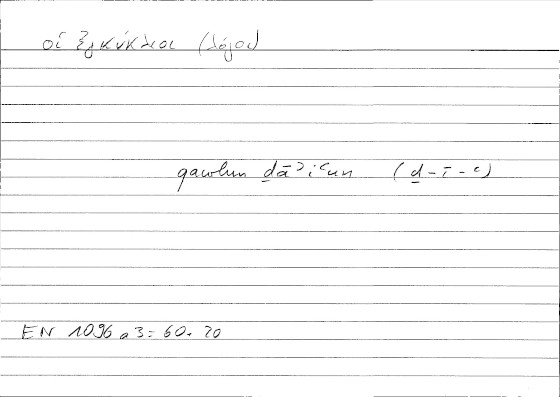 οἱ ἐγκύκλιοι (λόγοι)
qawlun ḏāʾiʿun (ḏ-ī-ʿ)
EN 1096 a3 = 60. 20